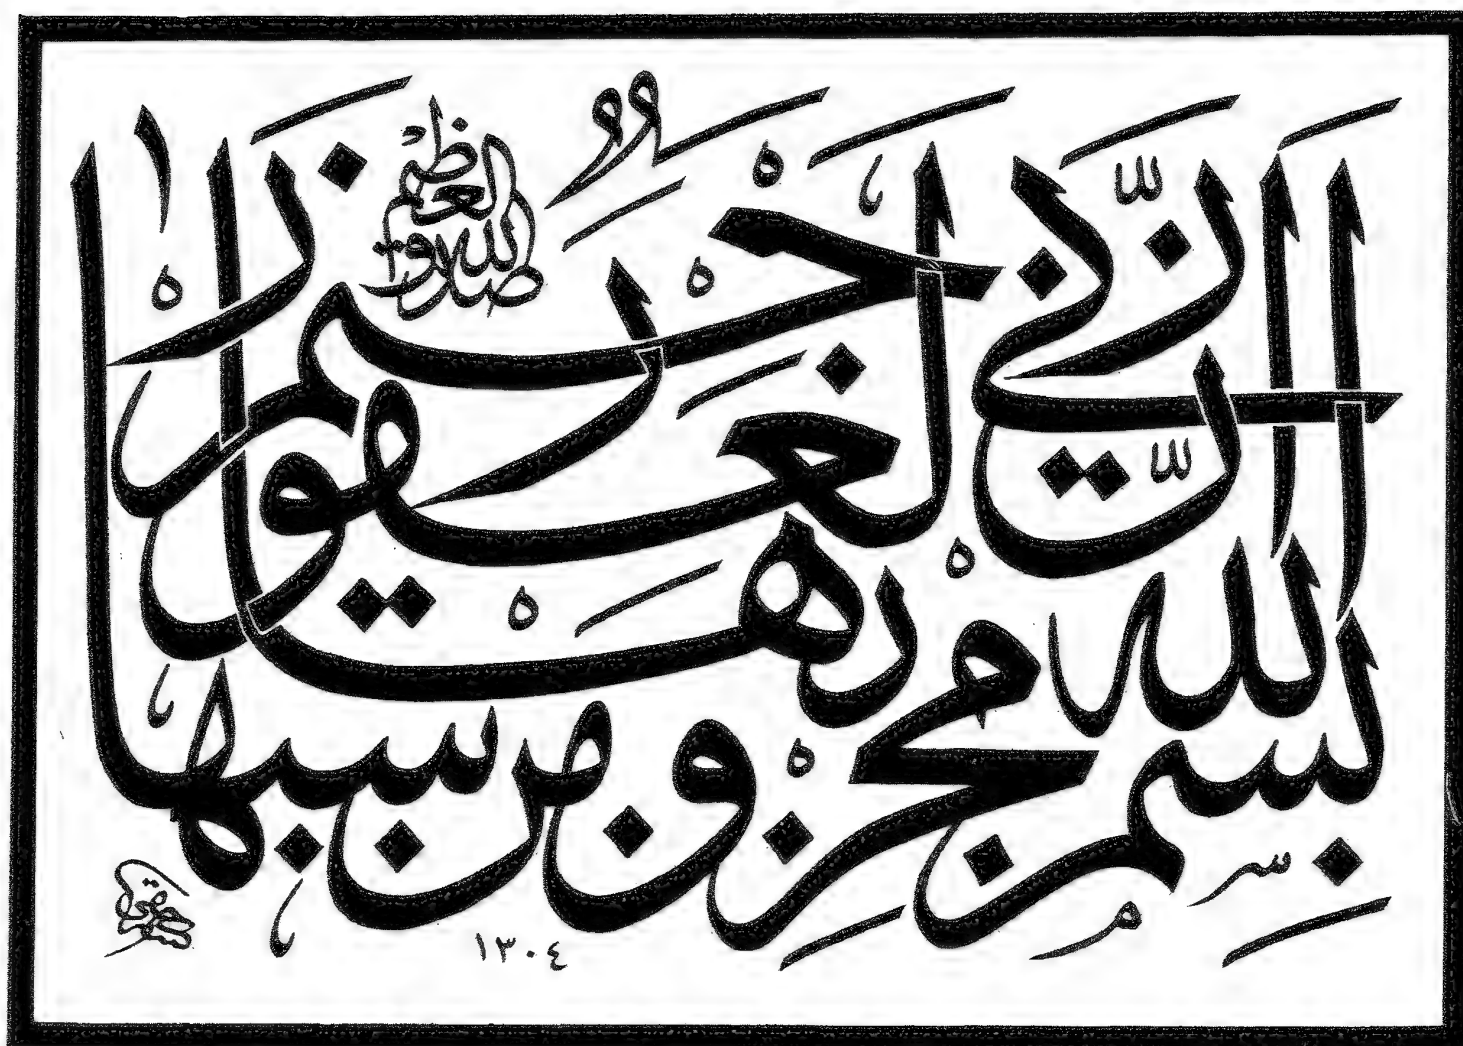 بسم الله مجريها ومرسيها
ان ربي لغفور رحيم
صدق الله العظيم
١٣٠٤